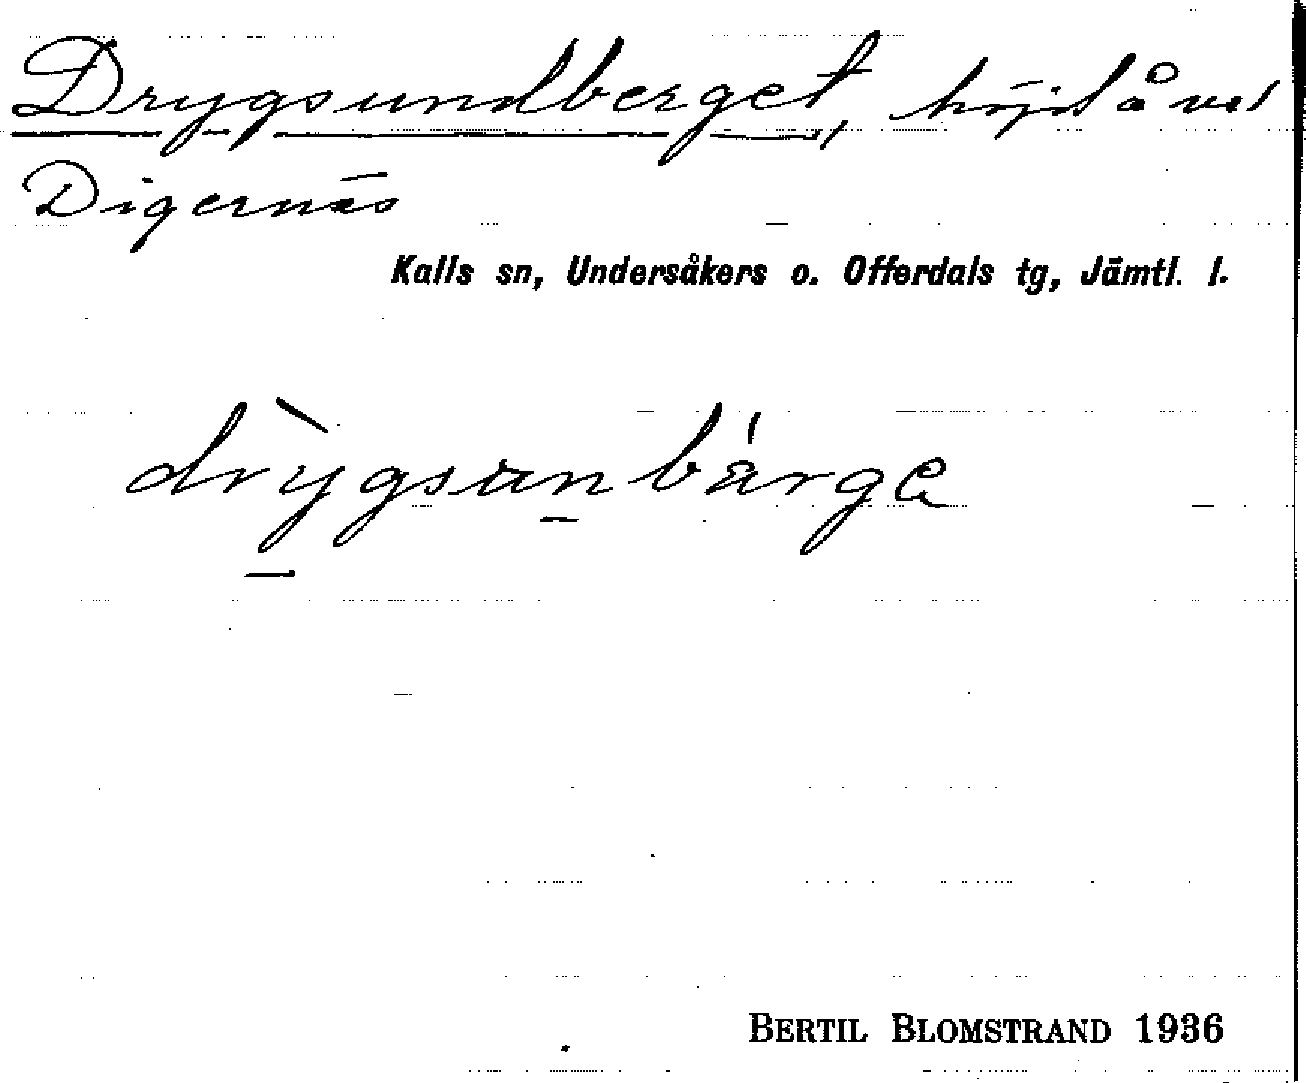 Drygsundberget, höjd å va!
Digernäs
Kalls sn, Undersåkers o. Offerdals tg, Jämtl. l.
drỳgsunbárge
BERTIL BLOMSTRAND 1936